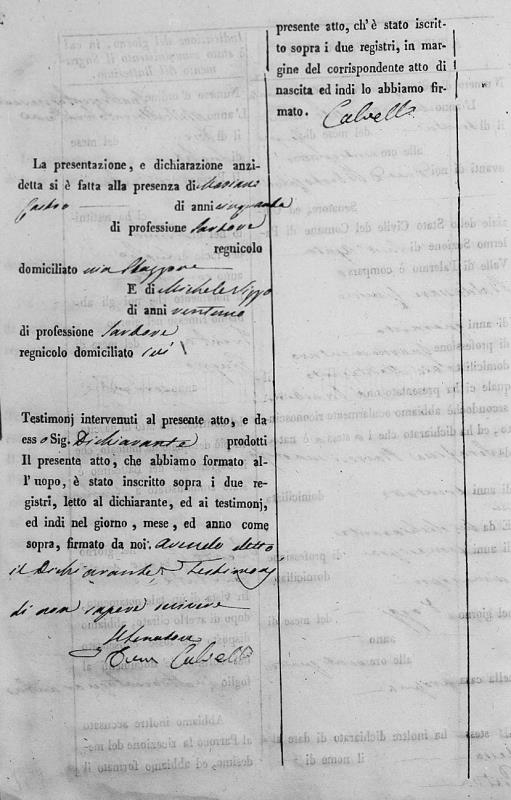 La presentazione, e dichiarazione anzi-
detta si è fatta alla presenza di Mariano
Castro di anni cinquanta
di professione Sartore
regnicolo
domiciliato via
E di Michele
di anni ventuno
di professione Sartore
regnicolo domiciliato ivi
Testimonj intervenuti al presente atto, e da
esso Sig. Dichiarante prodotti
Il presente atto, che abbiamo formato al-
l'uopo, è stato inscritto sopra i due re-
gistri, letto al dichiarante, ed ai testimonj,
ed indi nel giorno, mese, ed anno come
sopra, firmato da noi. avendo detto
il Dichiarante e Testimonj
di non sapere scrivere
Il Senatore
Calvello
presente atto, ch'è stato iscrit-
to sopra i due registri, in mar-
gine del corrispondente atto di
nascita ed indi lo abbiamo fir-
mato. Calvello